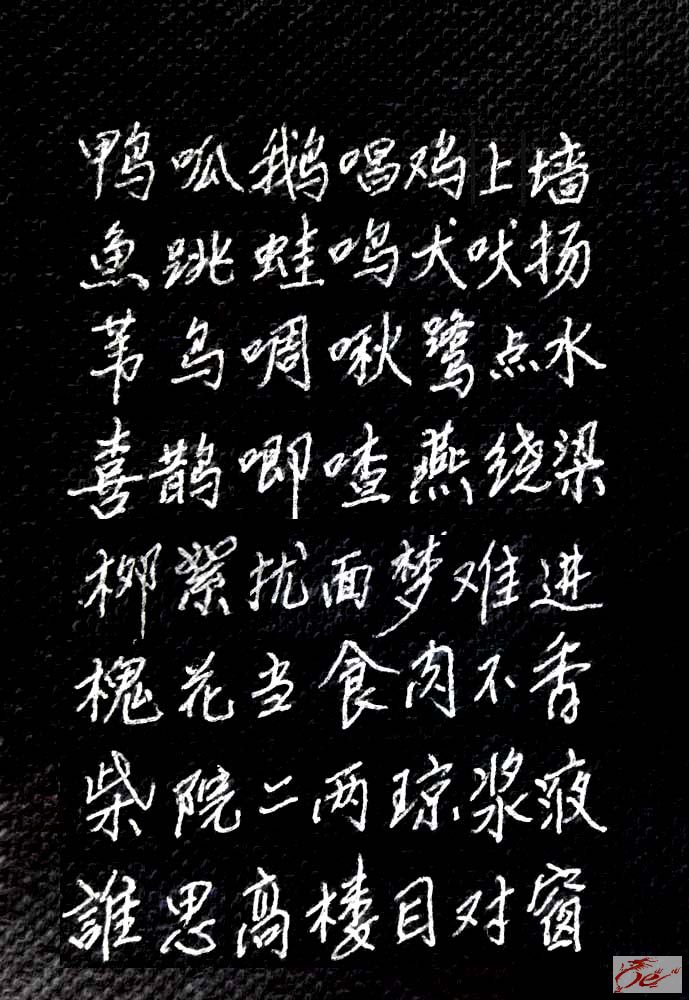 鸭呱鹅唱鸡上墙
魚跳蛙鸣犬吠扬
苇鸟啁啾鹭点水
喜鹊唧喳燕绕梁
柳絮扰面梦难进
槐花当食肉不香
柴院二两琼浆液
誰思高楼目对窗